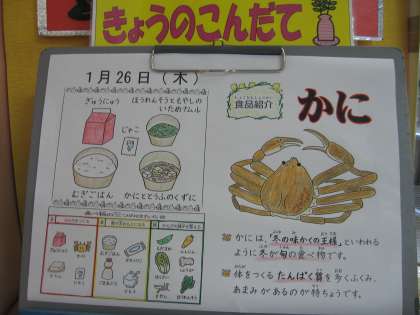 きょうのこんだて
1月26日(木)
ぎゅうにゅう
ほうれんそうともやしの
いためナムル
じゃこ
むぎごはん
かにととうふのくずに
食品紹介
かに
かには、「冬の味かくの王様」といわれる
ように冬が旬の食べ物です。
体をつくるたんぱく質を多くふくみ、
あまみがあるのが特ちょうです。